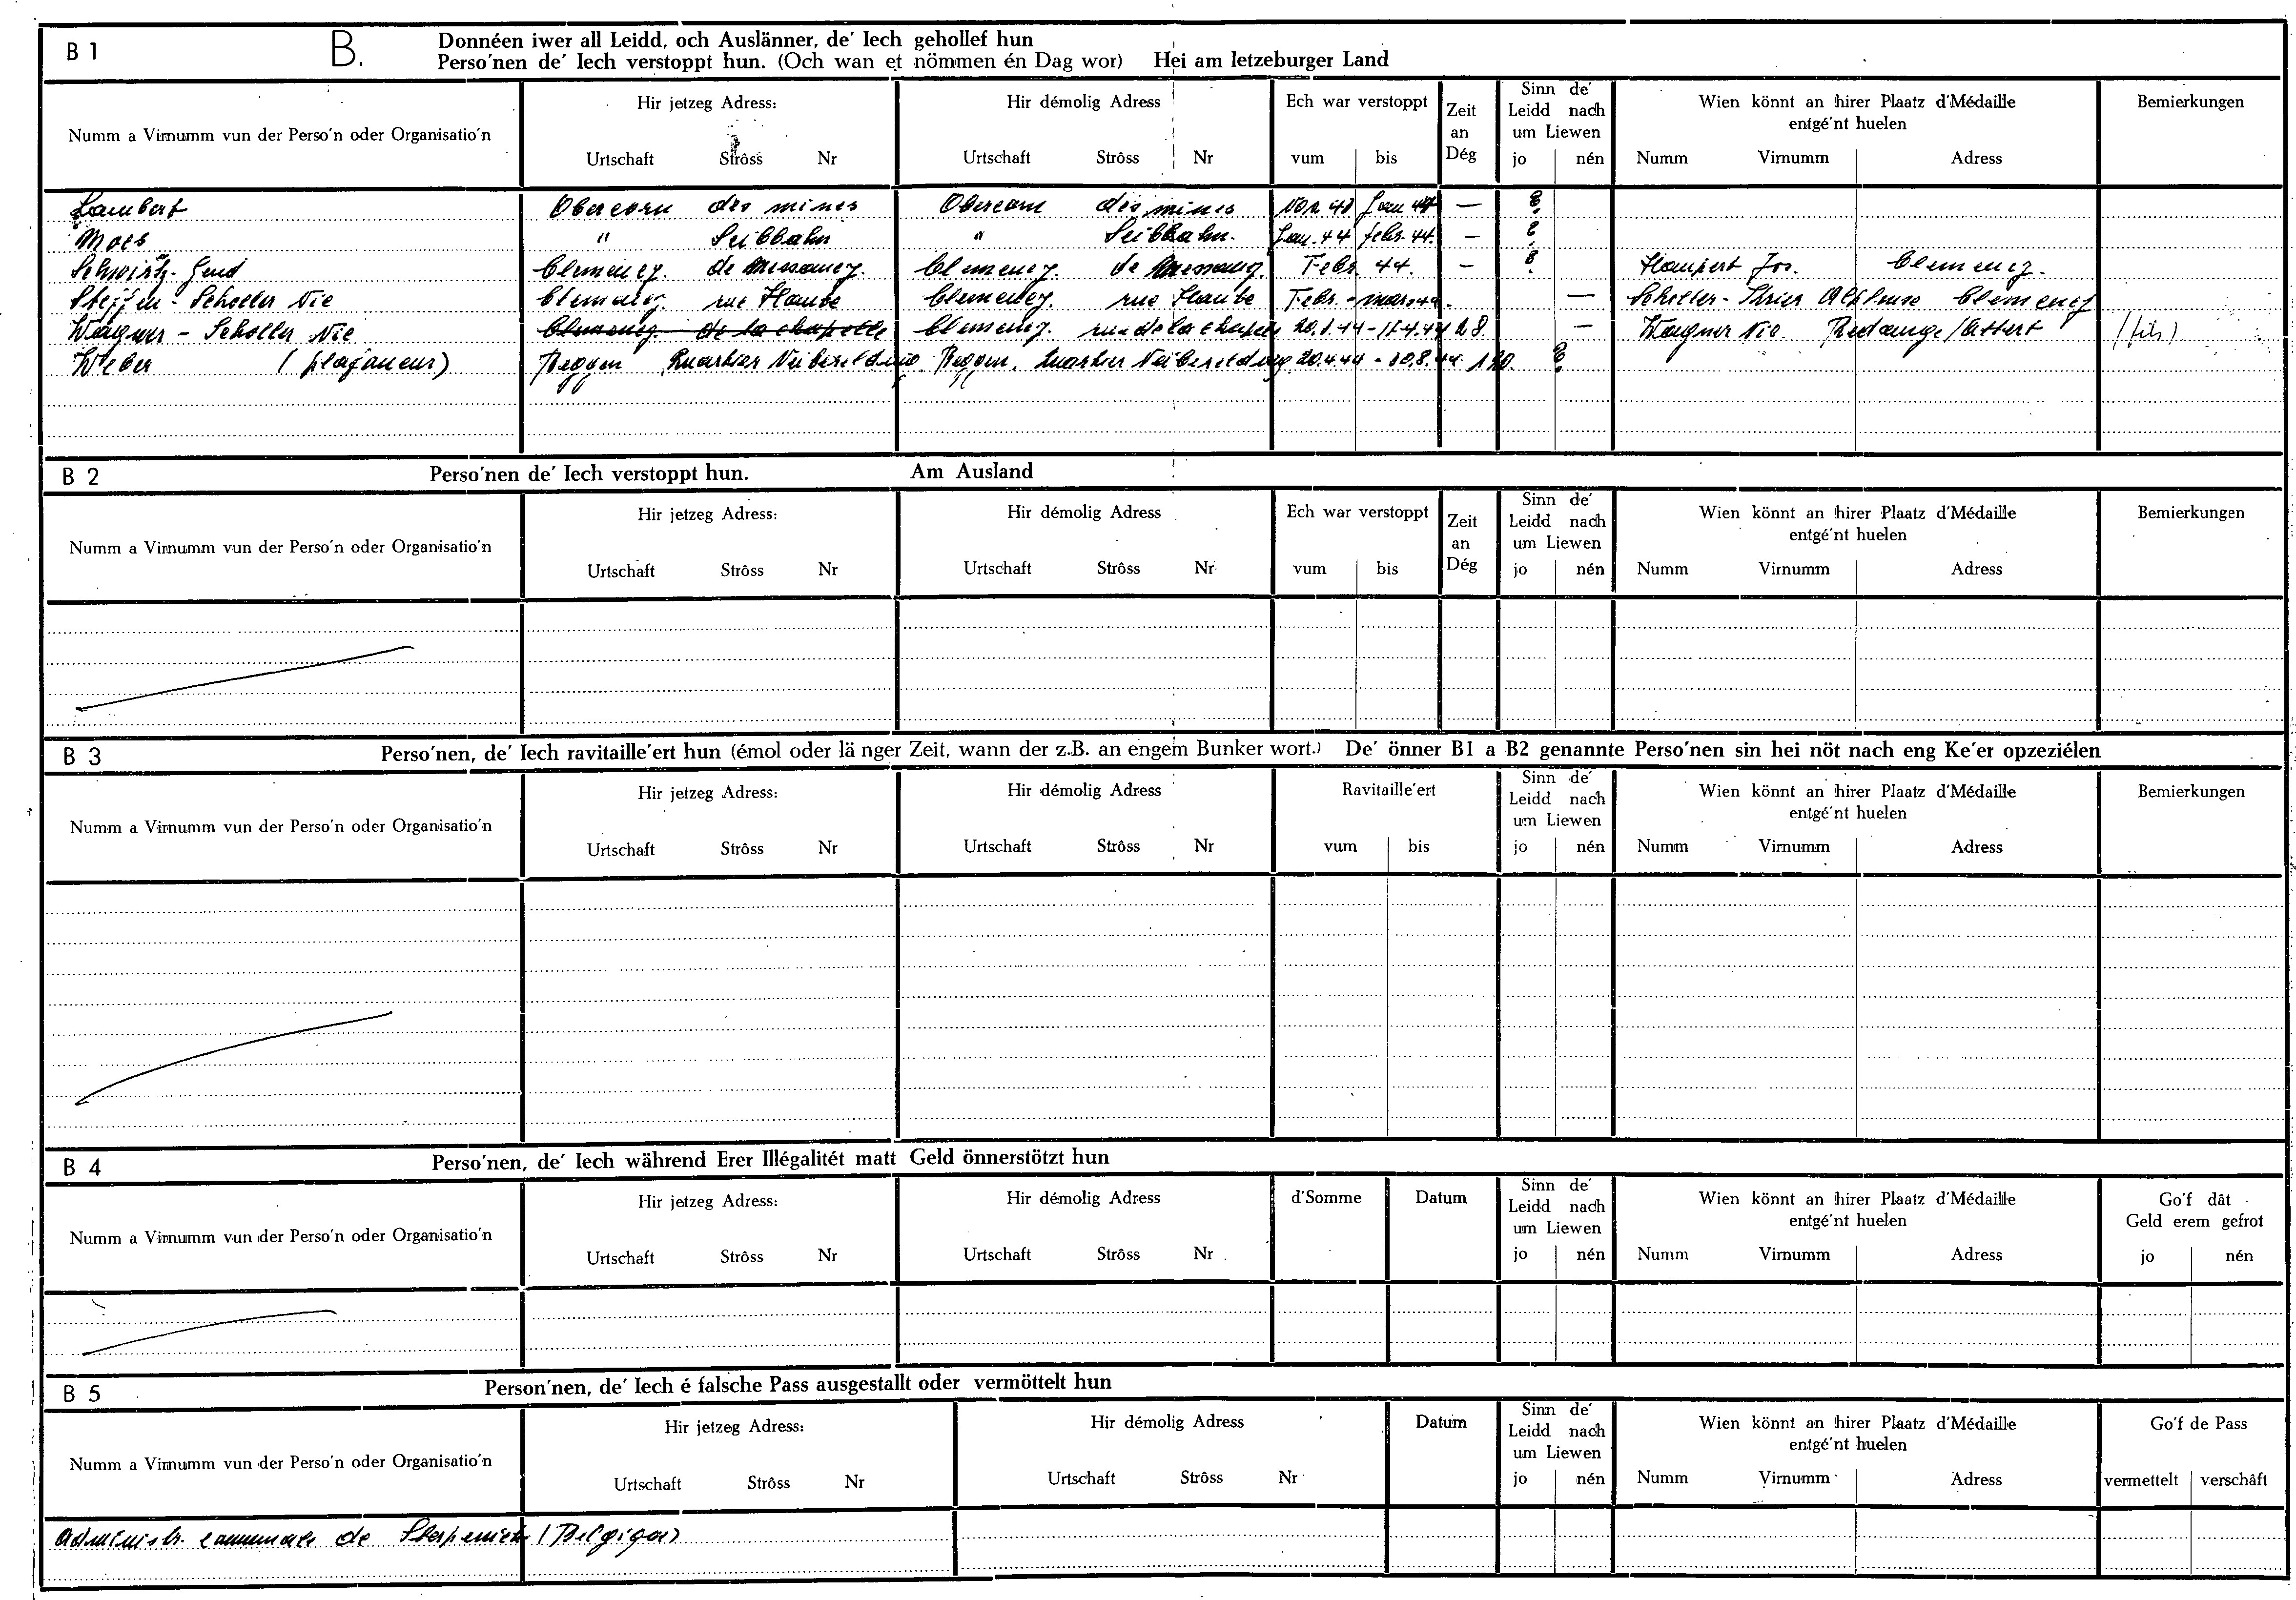 B 1 B. Donnéen iwer all Leidd, och Auslänner, de' Iech gehollef hun
Perso'nen de' Iech verstoppt hun. (Och wan et nömmen én Dag wor) Hei am letzeburger Land
Numm a Virnumm vun der Perso'n oder Organisatio'n
Hir jetzeg Adress:
Urtschaft Strôss Nr
Hir démolig Adress
Urtschaft Strôss Nr
Ech war verstoppt
vum bis
Zeit
an
Dég
Sinn de'
Leidd nach
um Liewen
jo nén
Wien könnt an hirer Plaatz d'Médaille
entgé'nt huelen
Numm Virnumm Adress
Bemierkungen
Lambert Obercorn des mines Obercorn des mines Jan 44 — ?
Moes " Leibbahn " Leibbahn. Jan. 44 febr. 44. — ?
Clemency. de Messancy. Clemency. de Messancy. Febr 44. — ? Jos. Clemency.
Steffen - Scholler Nic Clemency. rue Haute Clemency. rue Haute Febr. - mars 44. — Scholler - Thries Alphonse Clemency
Wagner - Scholler Nic Clemency. de la chapelle Clemency. rue de la chapelle 28. — Wagner Nic. Redange/Attert (fils)
Weber (plafoneur) Beggen Quartier Beggen. Quartier 20.4.44 - 30.8.44 130. ?
B 2 Perso'nen de' Iech verstoppt hun. Am Ausland
Numm a Virnumm vun der Perso'n oder Organisatio'n
Hir jetzeg Adress:
Urtschaft Strôss Nr
Hir démolig Adress
Urtschaft Strôss Nr
Ech war verstoppt
vum bis
Zeit
an
Dég
Sinn de'
Leidd nach
um Liewen
jo nén
Wien könnt an hirer Plaatz d'Médaille
entgé'nt huelen
Numm Virnumm Adress
Bemierkungen
B 3 Perso'nen, de' Iech ravitaille'ert hun (émol oder länger Zeit, wann der z.B. an engem Bunker wort.) De' önner B1 a B2 genannte Perso'nen sin hei nöt nach eng Ke'er opzeziélen
Numm a Virnumm vun der Perso'n oder Organisatio'n
Hir jetzeg Adress:
Urtschaft Strôss Nr
Hir démolig Adress
Urtschaft Strôss Nr
Ravitaille'ert
vum bis
Sinn de'
Leidd nach
um Liewen
jo nén
Wien könnt an hirer Plaatz d'Médaille
entgé'nt huelen
Numm Virnumm Adress
Bemierkungen
B 4 Perso'nen, de' Iech während Erer Illégalitét matt Geld önnerstötzt hun
Numm a Virnumm vun der Perso'n oder Organisatio'n
Hir jetzeg Adress:
Urtschaft Strôss Nr
Hir démolig Adress
Urtschaft Strôss Nr
d'Somme
Datum
Sinn de'
Leidd nach
um Liewen
jo nén
Wien könnt an hirer Plaatz d'Médaille
entgé'nt huelen
Numm Virnumm Adress
Go'f dât
Geld erem gefrot
jo nén
B 5 Person'nen, de' Iech é falsche Pass ausgestallt oder vermöttelt hun
Numm a Virnumm vun der Perso'n oder Organisatio'n
Hir jetzeg Adress:
Urtschaft Strôss Nr
Hir démolig Adress
Urtschaft Strôss Nr
Datum
Sinn de'
Leidd nach
um Liewen
jo nén
Wien könnt an hirer Plaatz d'Médaille
entgé'nt huelen
Numm Virnumm Adress
Go'f de Pass
vermettelt verschâft
Administr. communale de Sterpenich (Belgique)